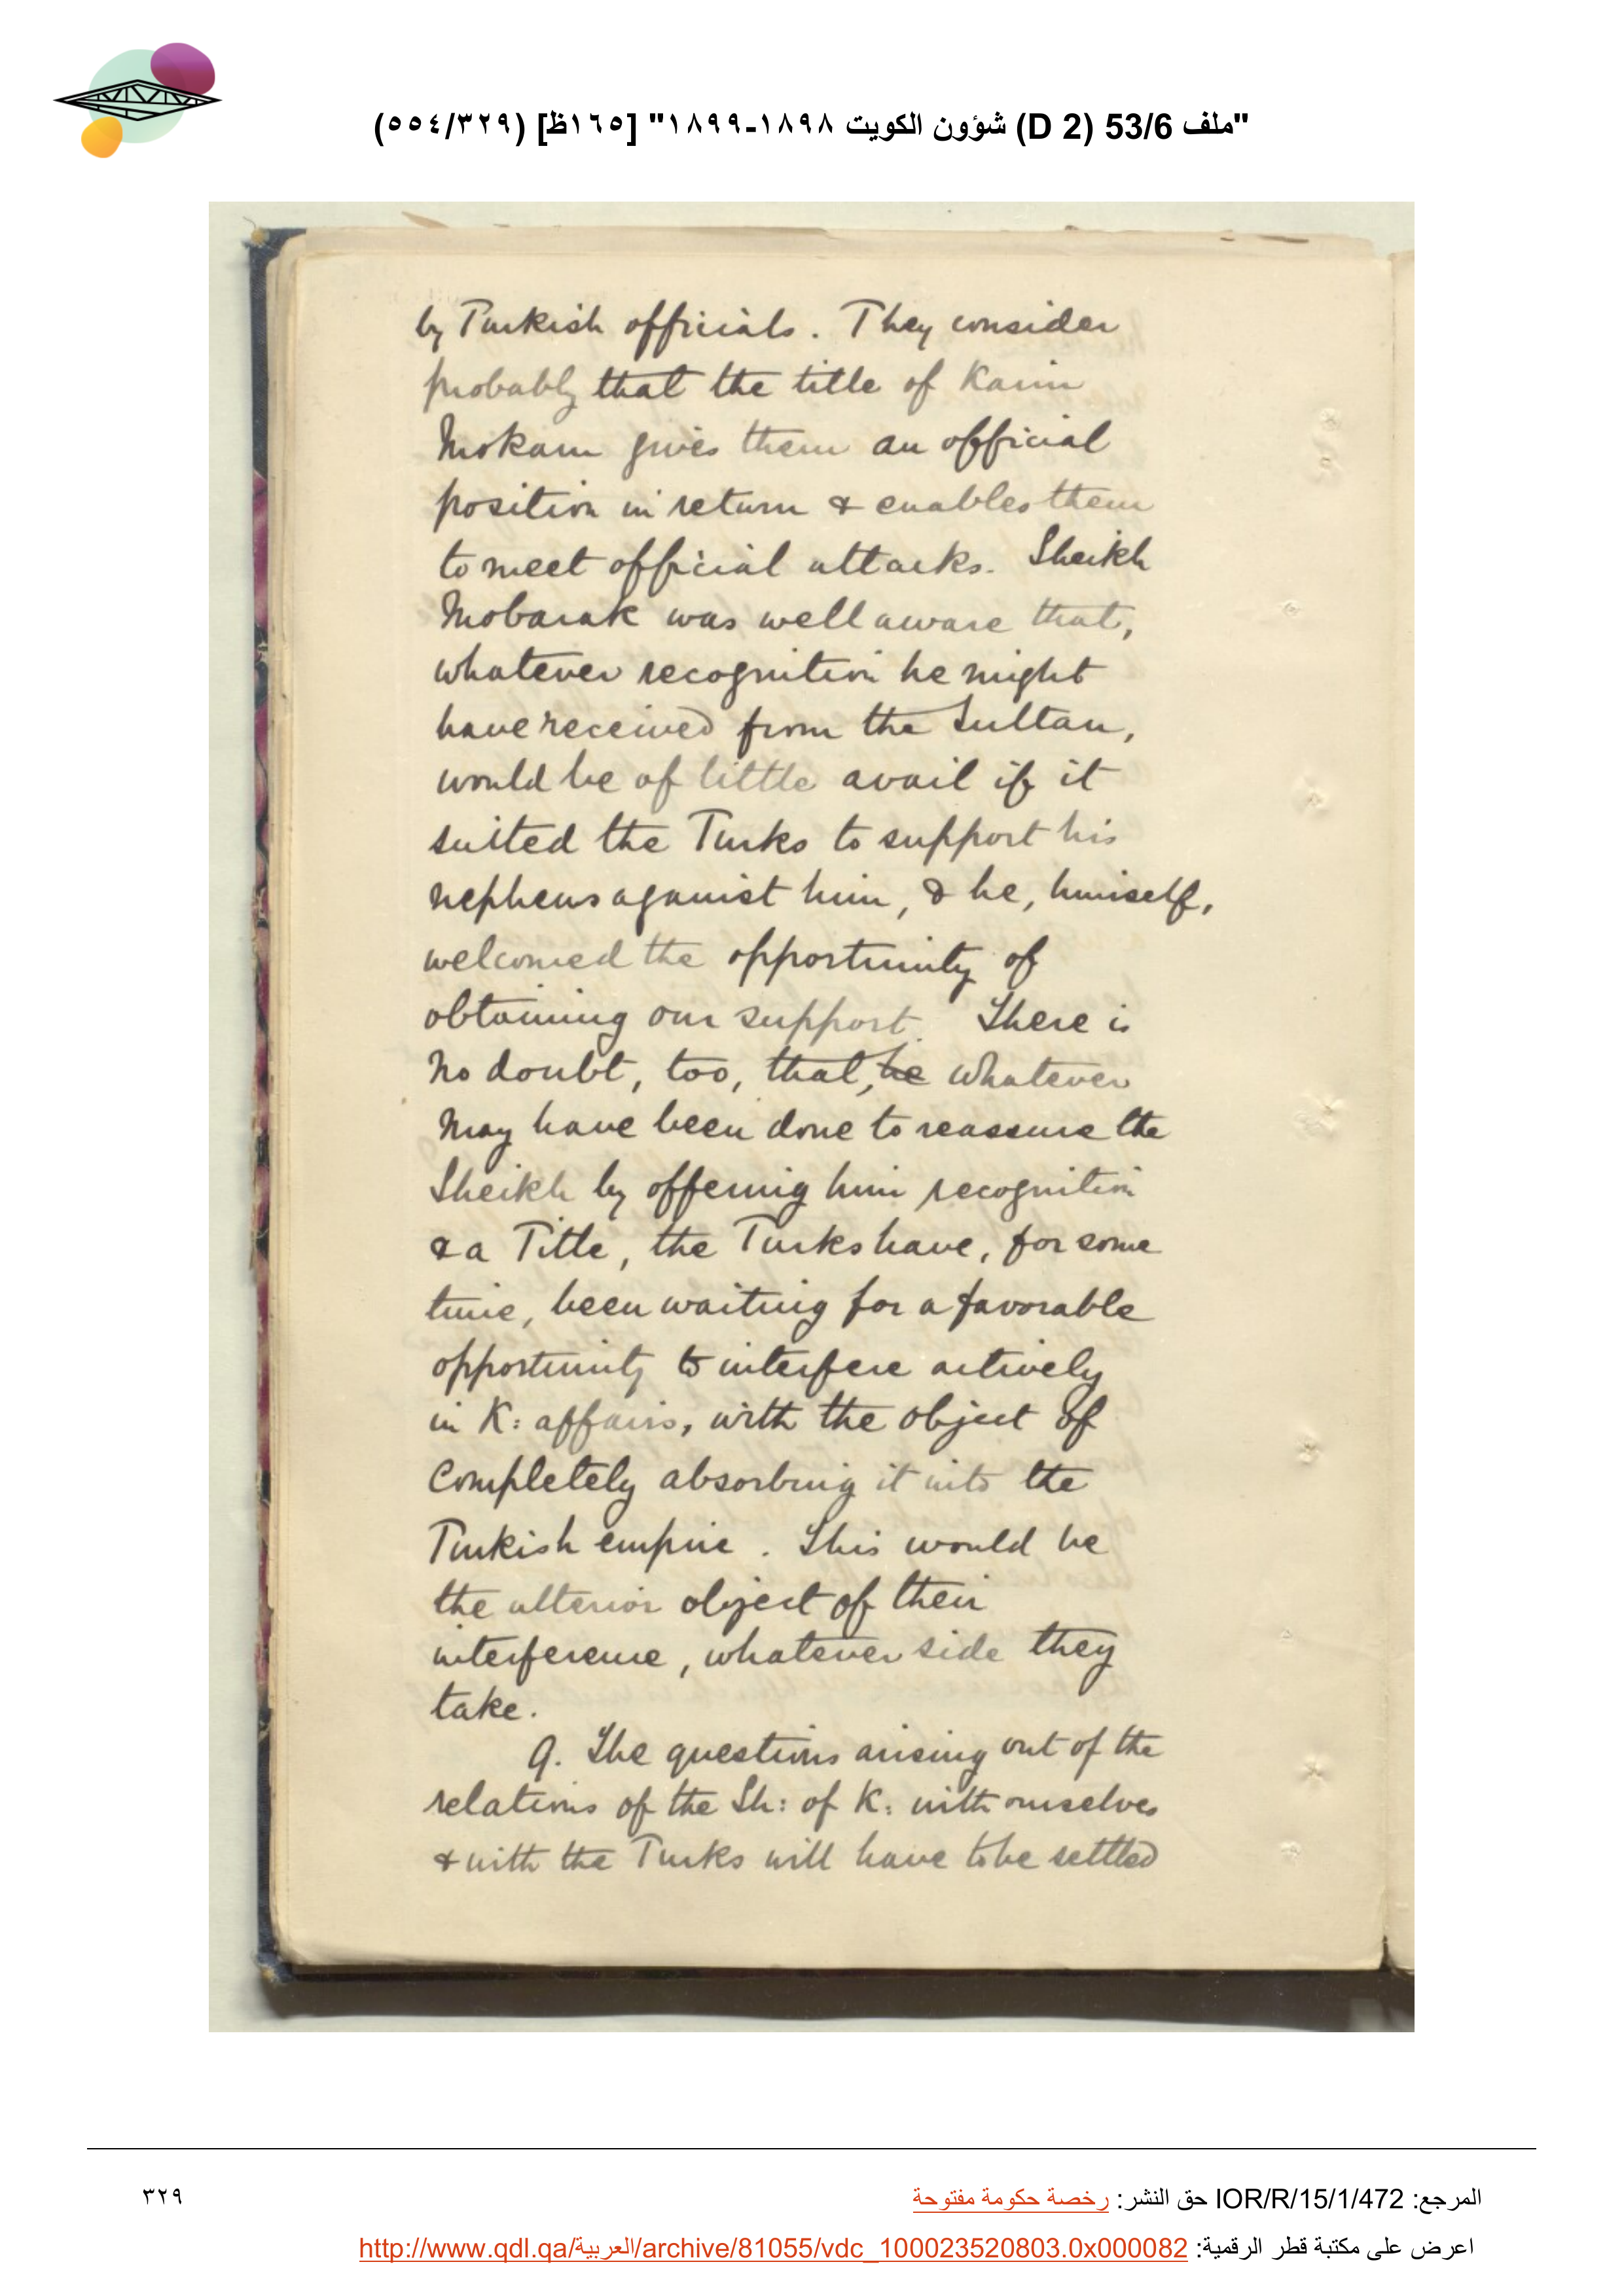 "ملف 53/6 (D 2) شؤون الكويت ١٨٩٨-١٨٩٩" [١٦٥ظ] (٥٥٤/٣٢٩)
by Turkish officials. They consider
probably that the title of Kaim
Mokam gives them an official
position in return & enables them
to meet official attacks. Sheikh
Mobarak was well aware that,
whatever recognition he might
have received from the Sultan,
would be of little avail if it
suited the Turks to support his
nephews against him, & he, himself,
welcomed the opportunity of
obtaining our support. There is
no doubt, too, that, he whatever
may have been done to reassure the
Sheikh by offering him recognition
& a Title, the Turks have, for some
time, been waiting for a favorable
opportunity to interfere actively
in K: affairs, with the object of
completely absorbing it into the
Turkish empire. This would be
the ulterior object of their
interference, whatever side they
take.
9. The questions arising out of the
relations of the Sh: of K: with ourselves
& with the Turks will have to be settled
المرجع: IOR/R/15/1/472 حق النشر: رخصة حكومة مفتوحة
٣٢٩
اعرض على مكتبة قطر الرقمية: http://www.qdl.qa/العربية/archive/81055/vdc_100023520803.0x000082